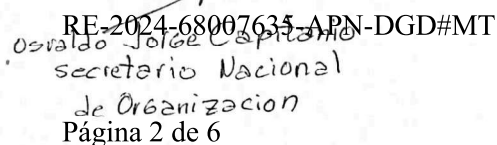 RE-2024-68007635-APN-DGD#MT
Osvaldo Jorge Capitanio
secretario Nacional
de Organizacion
Página 2 de 6